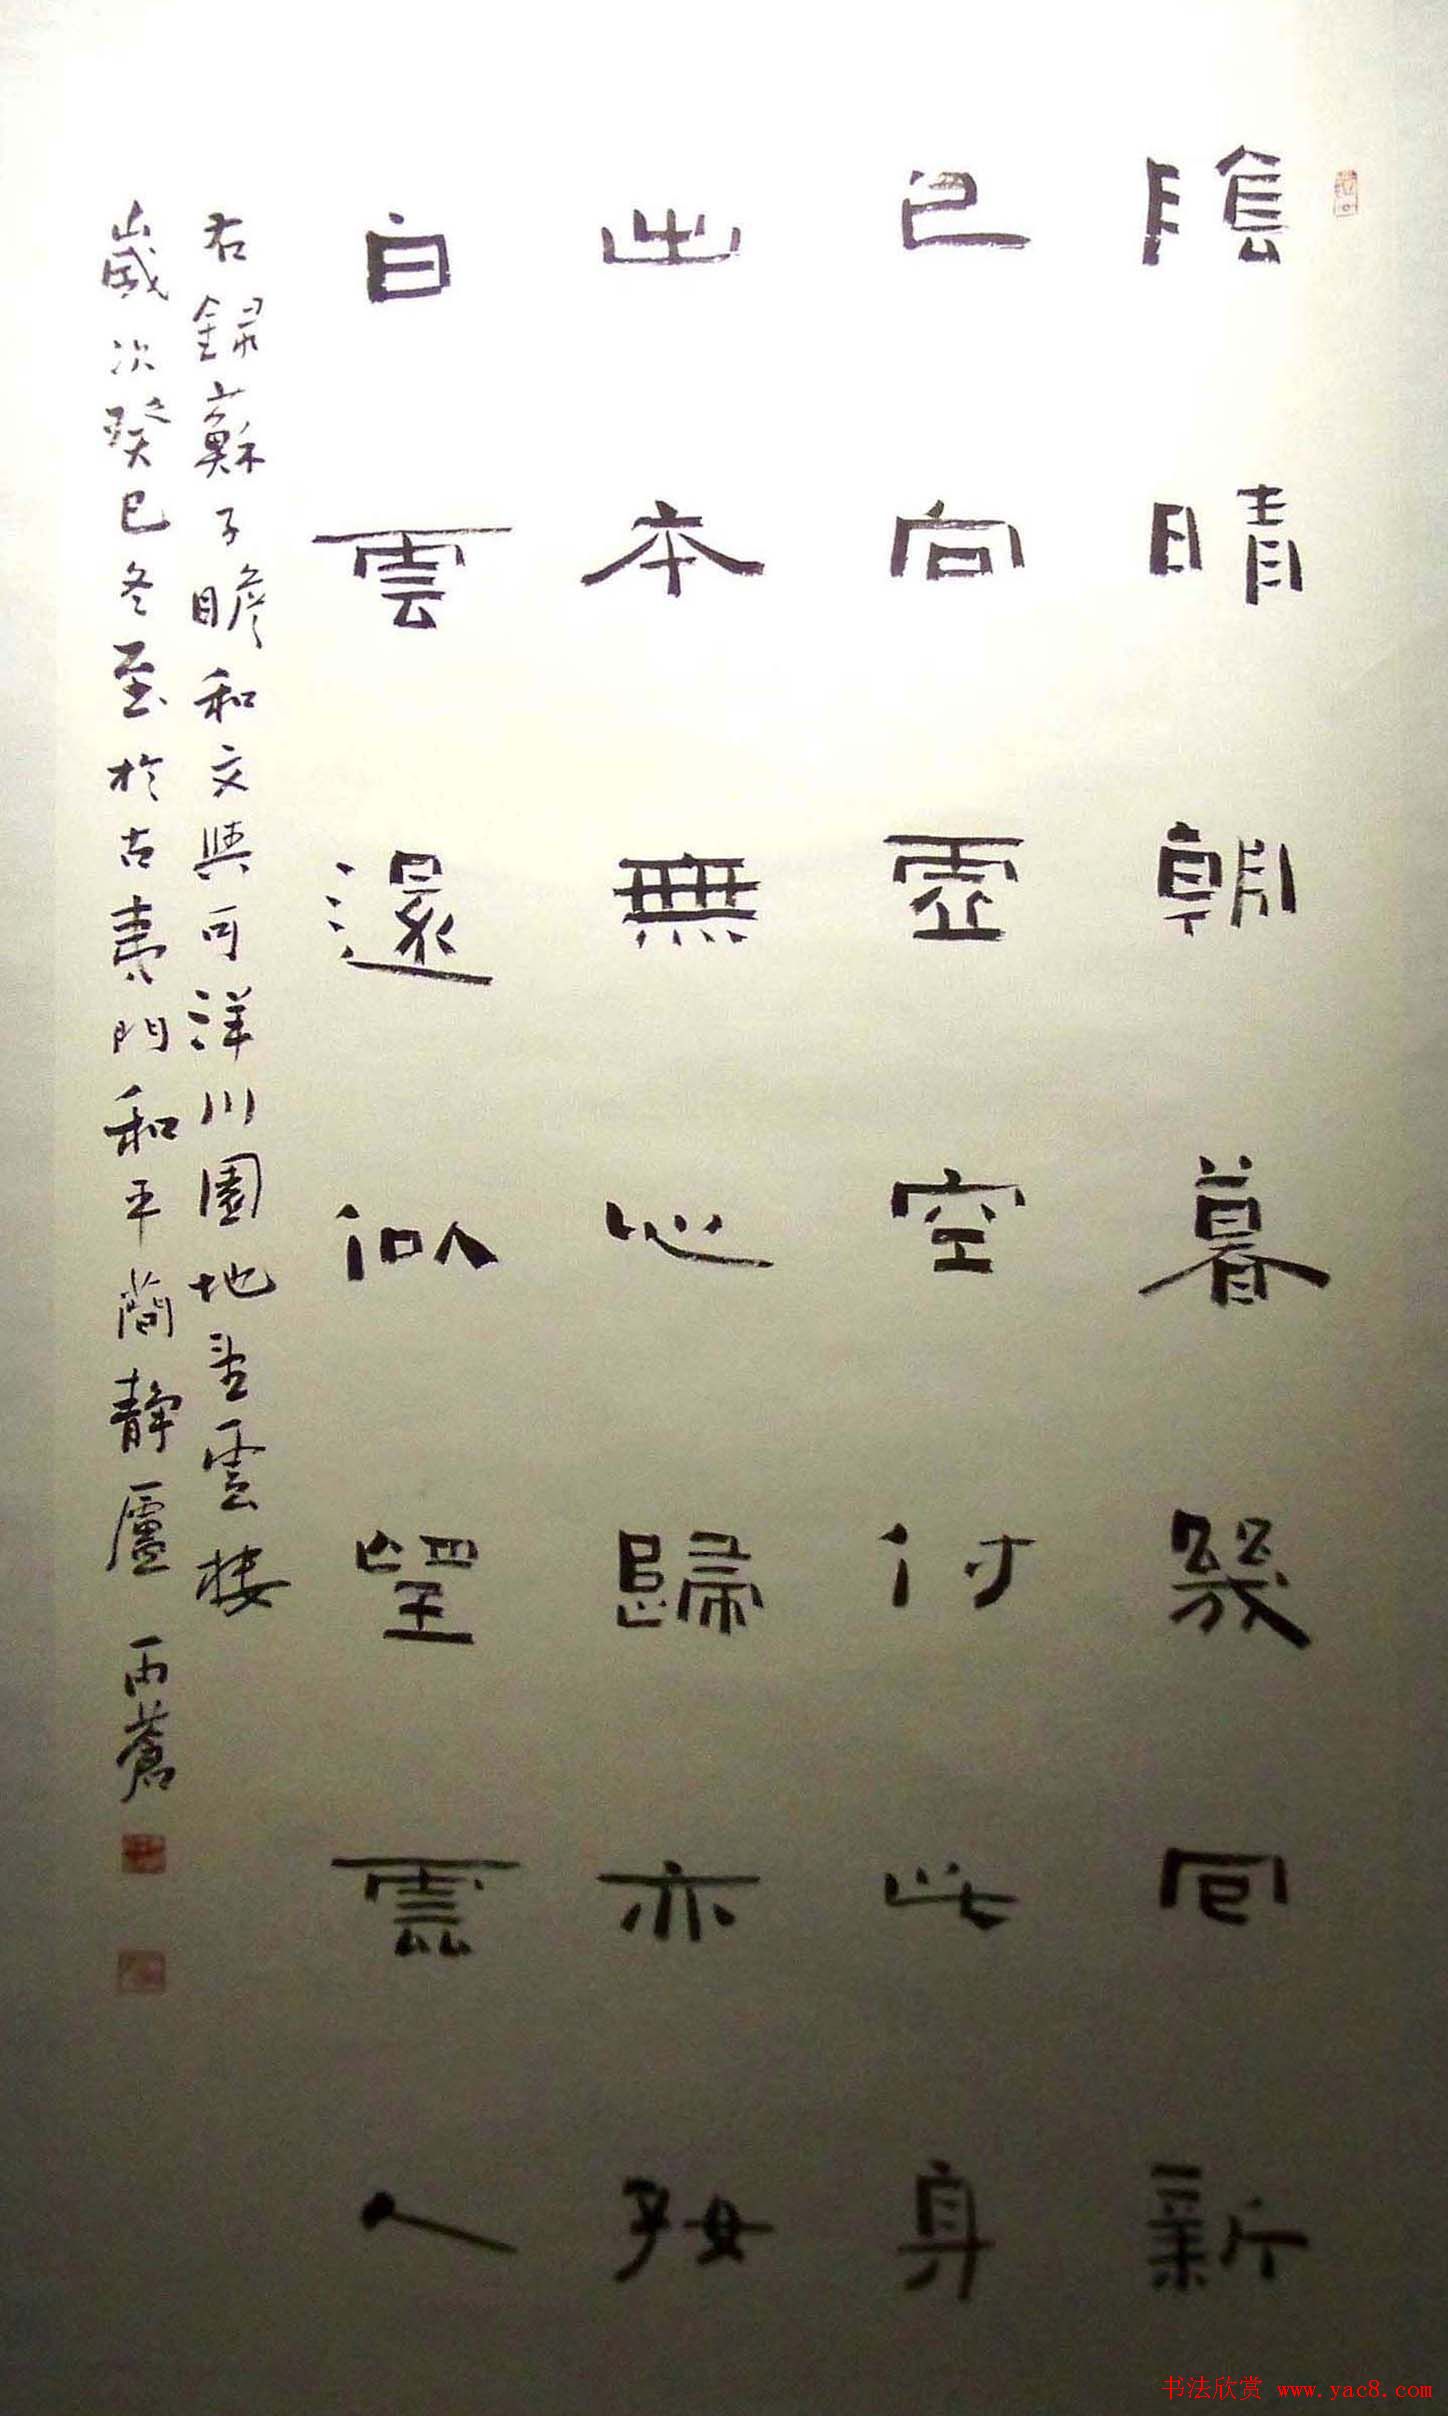 陰晴朝暮幾回新
已向虛空付此身
出本無心歸亦好
白雲還似望雲人
右録蘇子瞻和文與可洋川園地望雲楼
歲次癸巳冬至於古門和平簡静廬 丙蒼
书法欣赏 www.yac8.com